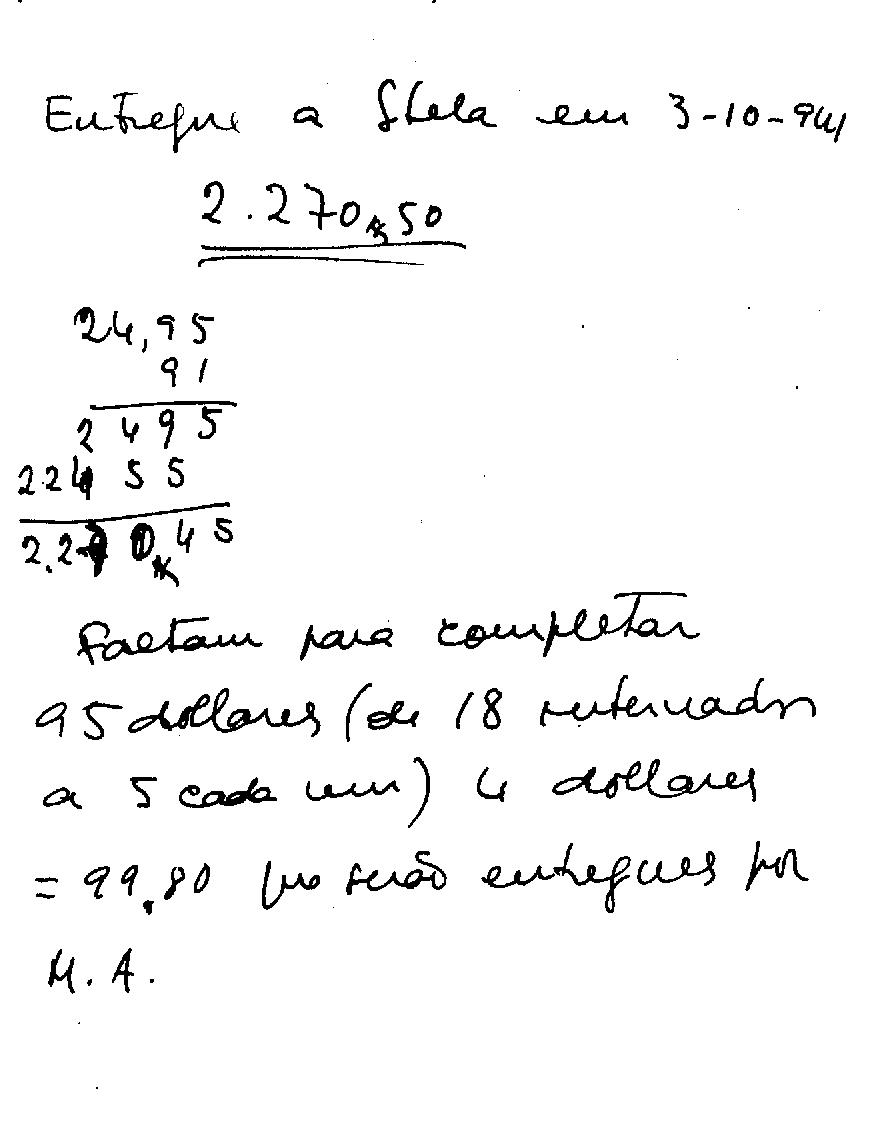 Entregue a Stela em 3-10-944
2.270,50
24,95
91
2 4 9 5
2 2 4 5 5
2.2 7 0, 4 5
faltam para completar
95 dollares (de 18 internados
a 5 cada um) 4 dollares
= 99.80 que serão entregues por
M. A.